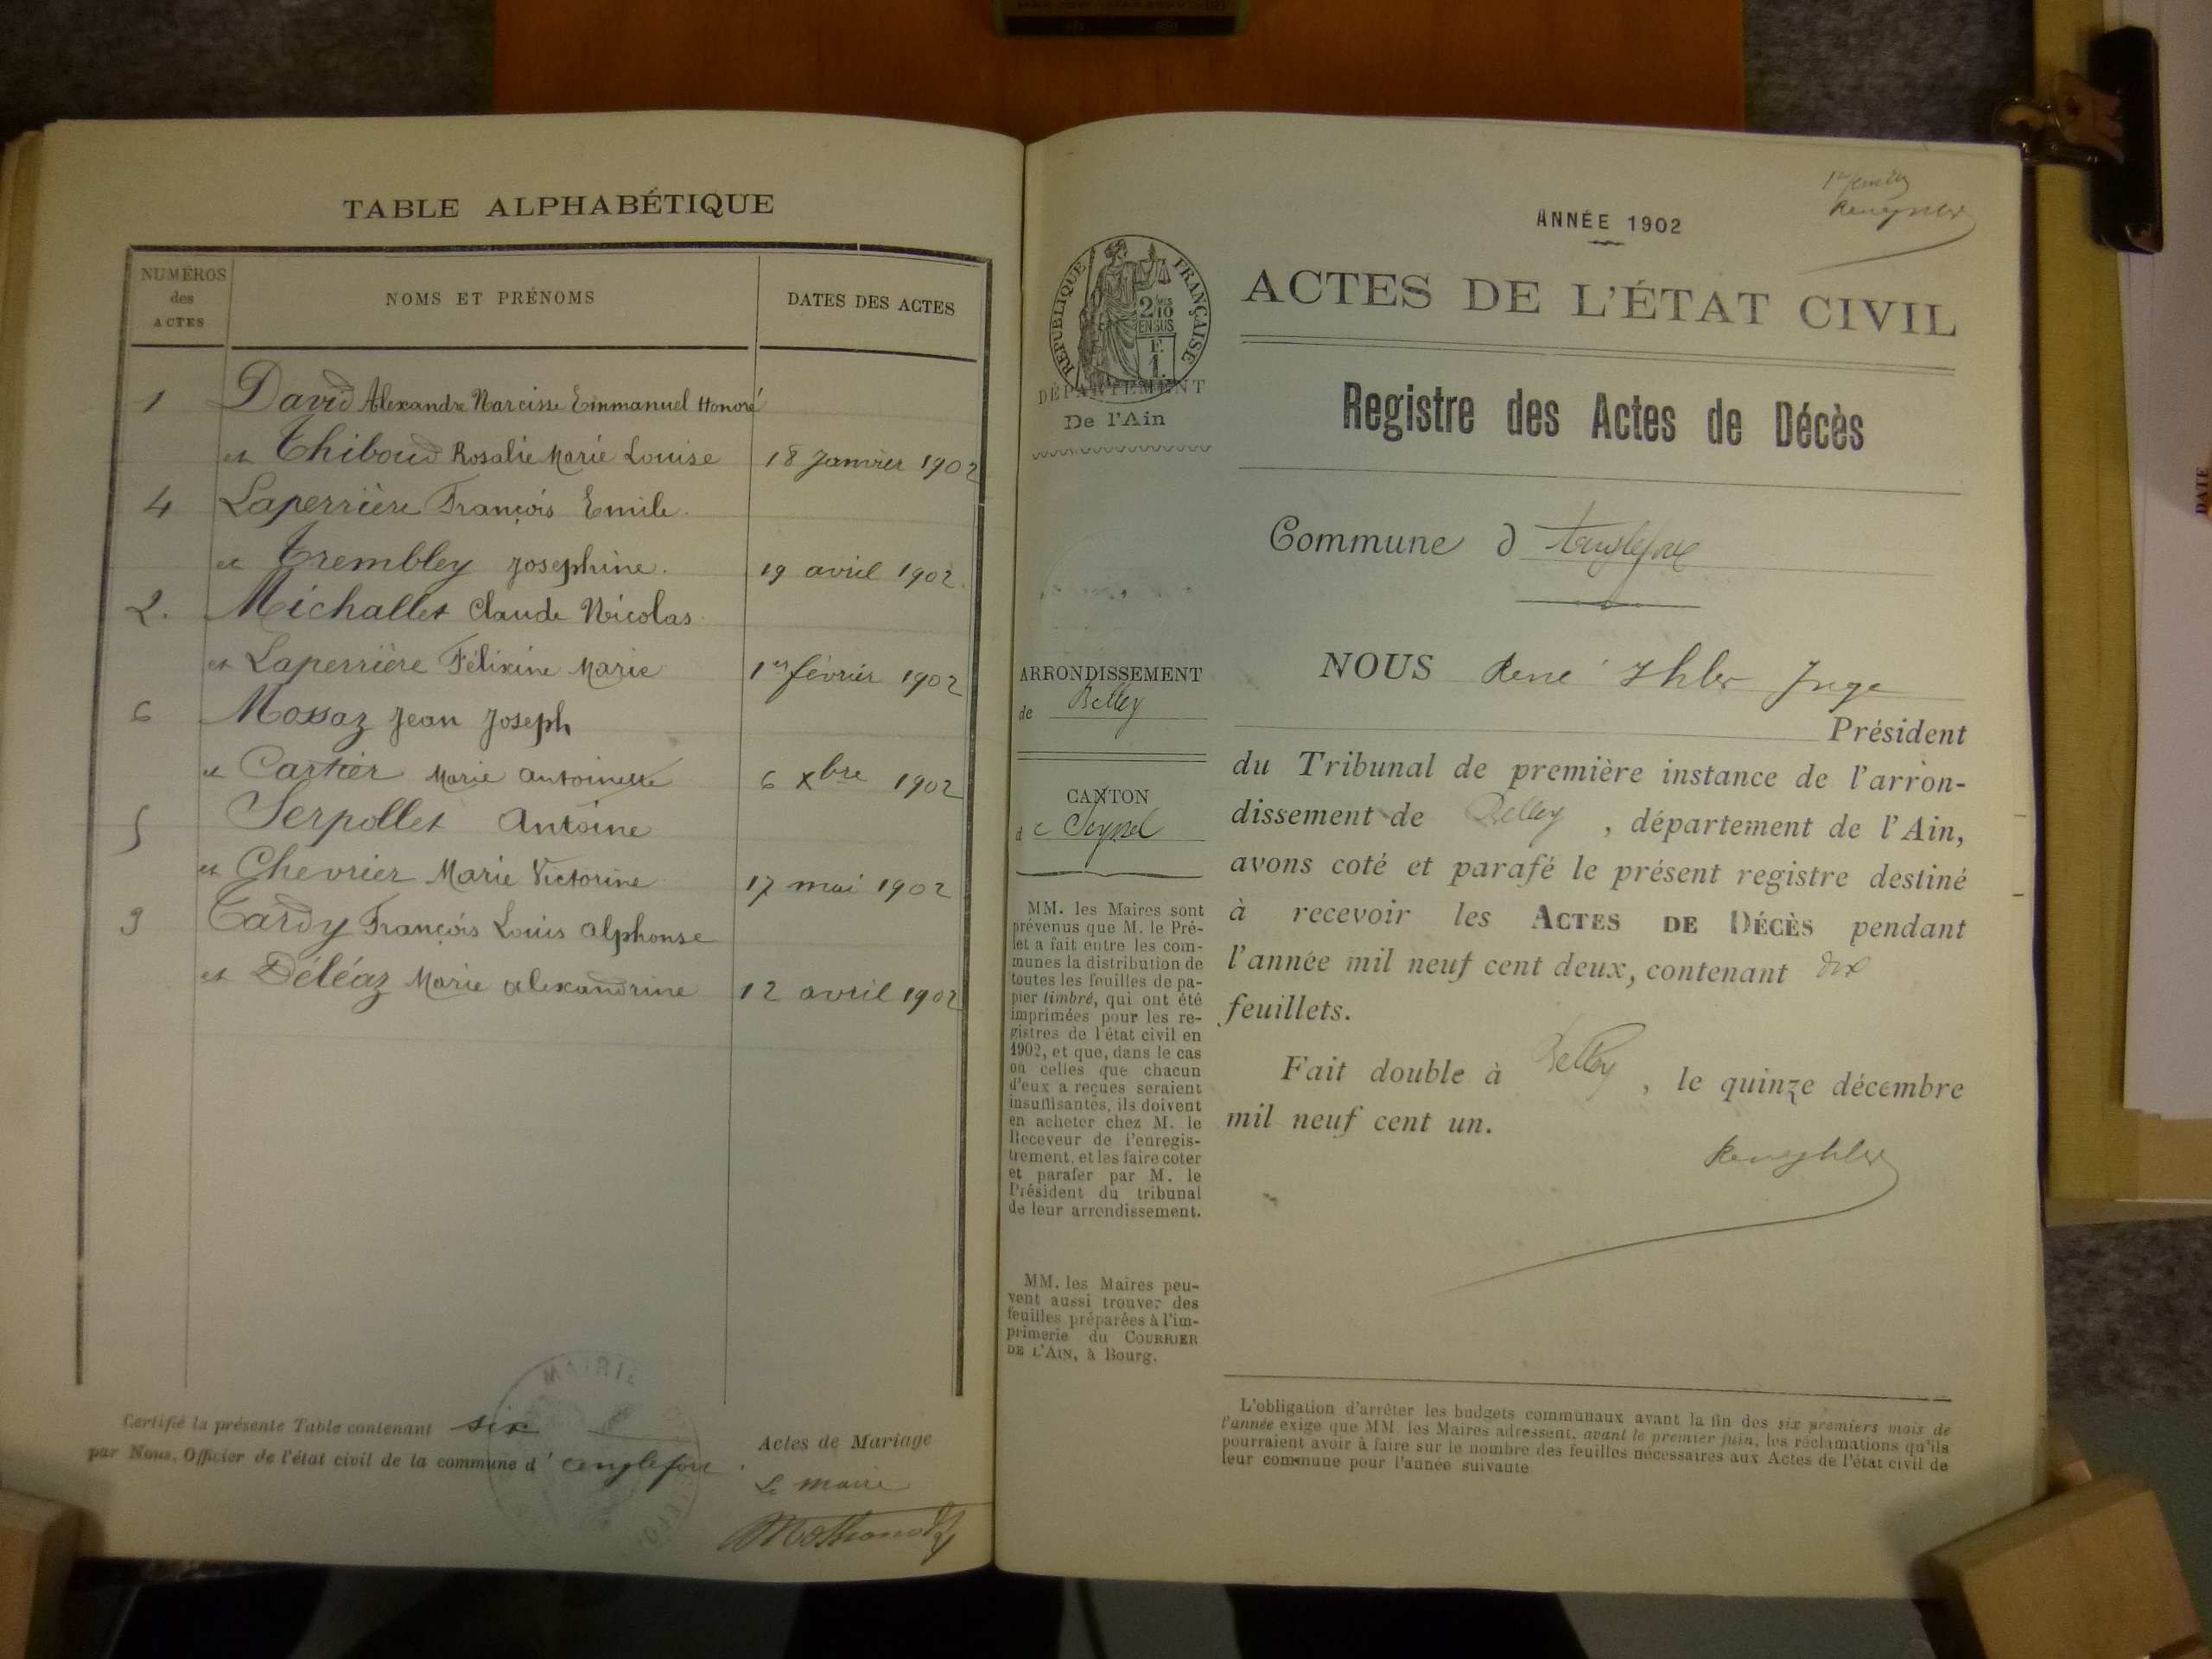 TABLE ALPHABÉTIQUE
NUMÉROS
des
ACTES
NOMS ET PRÉNOMS
DATES DES ACTES
1 David Alexandre Narcisse Emmanuel Honoré
et Thiboud Rosalie Marie Louise 18 Janvier 1902
4 Laperrière François Emile
et Trembley Josephine. 19 avril 1902
2. Michallet Claude Nicolas
et Laperrière Félixine Marie 1er février 1902
6 Mossaz Jean Joseph
et Cartier Marie Antoinette 6 Xbre 1902
5 Serpollet Antoine
et Chevrier Marie Victorine 17 mai 1902
3 Tardy François Louis Alphonse
et Déléaz Marie Alexandrine 12 avril 1902
Certifié la présente Table contenant six Actes de Mariage
par Nous, Officier de l'état civil de la commune d'anglefort
Le maire
MAIRIE
ANNÉE 1902
ACTES DE L'ÉTAT CIVIL
RÉPUBLIQUE FRANÇAISE
2/10
EN SUS
F.
1.
DÉPARTEMENT
De l'Ain
Registre des Actes de Décès
Commune d Anglefort
ARRONDISSEMENT
de Belley
CANTON
de Seyssel
MM. les Maires sont
prévenus que M. le Pré-
fet a fait entre les com-
munes la distribution de
toutes les feuilles de pa-
pier timbré, qui ont été
imprimées pour les re-
gistres de l'état civil en
1902, et que, dans le cas
où celles que chacun
d'eux a reçues seraient
insuffisantes, ils doivent
en acheter chez M. le
Receveur de l'enregis-
trement, et les faire coter
et parafer par M. le
Président du tribunal
de leur arrondissement.
MM. les Maires peu-
vent aussi trouver des
feuilles préparées à l'im-
primerie du COURRIER
DE L'AIN, à Bourg.
NOUS René Ihler Juge
Président
du Tribunal de première instance de l'arron-
dissement de Belley, département de l'Ain,
avons coté et parafé le présent registre destiné
à recevoir les ACTES DE DÉCÈS pendant
l'année mil neuf cent deux, contenant dix
feuillets.
Fait double à Belley, le quinze décembre
mil neuf cent un.
René Ihler
L'obligation d'arrêter les budgets communaux avant la fin des six premiers mois de
l'année exige que MM. les Maires adressent, avant le premier juin, les réclamations qu'ils
pourraient avoir à faire sur le nombre des feuilles nécessaires aux Actes de l'état civil de
leur commune pour l'année suivante
DATE